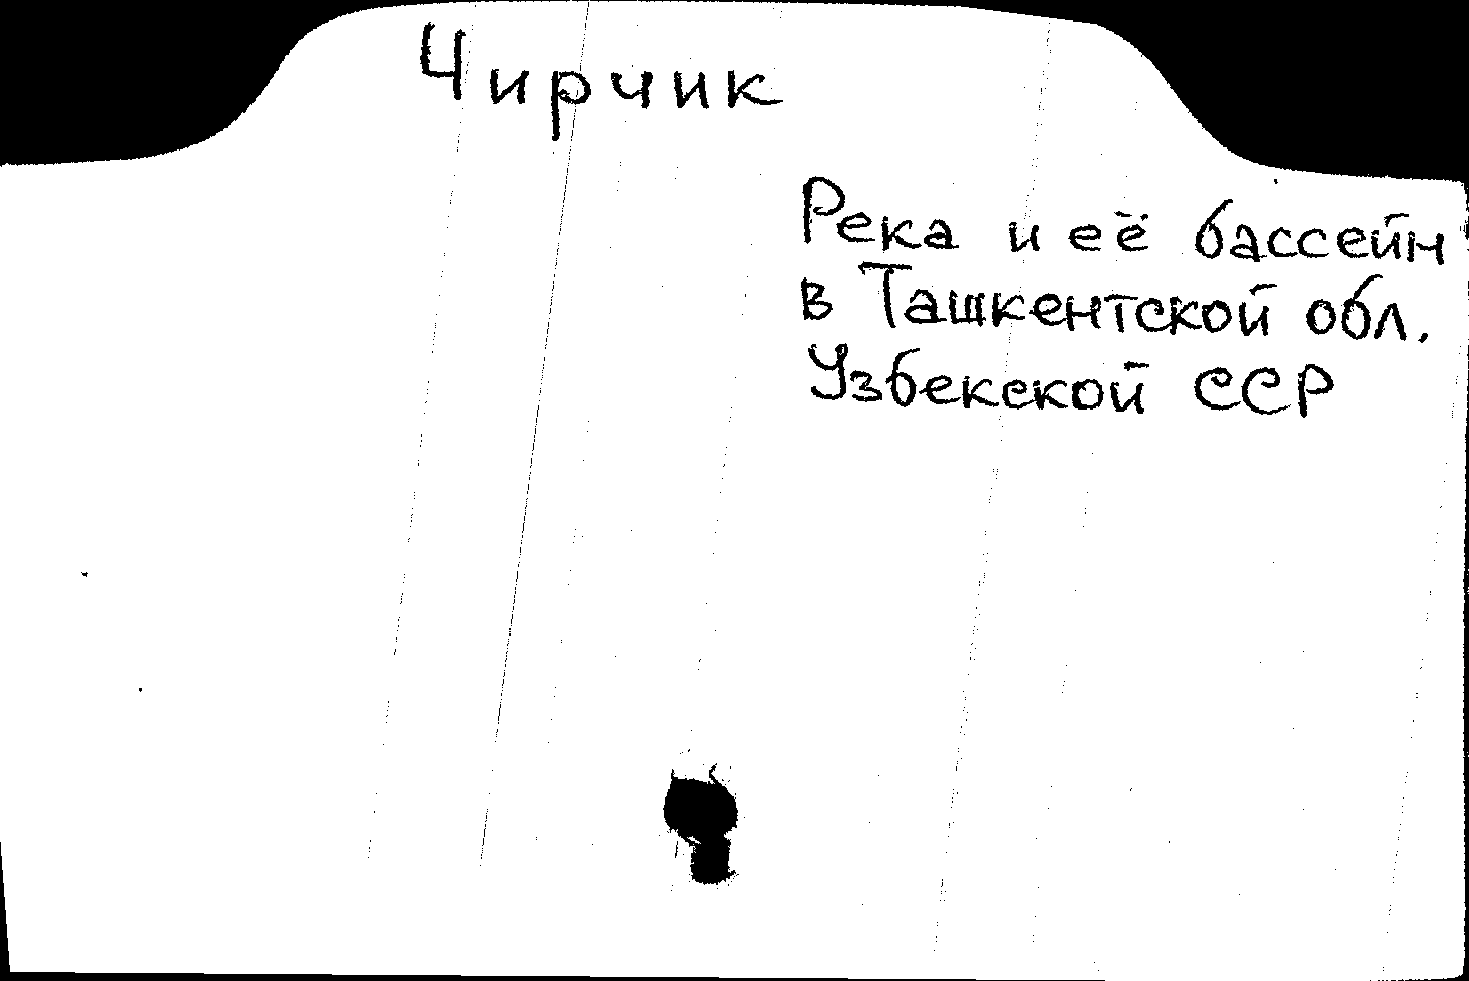 Чирчик
Река и её бассейн
в Ташкентской обл.
Узбекской ССР